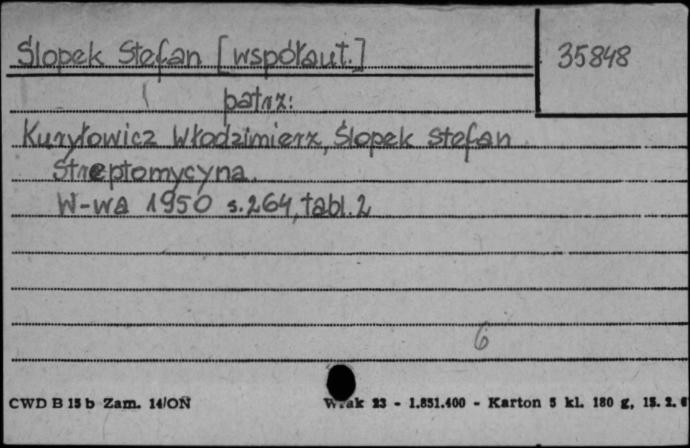 Ślopek Stefan [współaut.]
35848
patrz:
Kuryłowicz Włodzimierz, Ślopek Stefan
Streptomycyna.
W-wa 1950 s.264, tabl.2
6
CWD B 15 b Zam. 14/ON
23 - 1.851.400 - Karton 5 kl. 180 g, 15. 2. 6